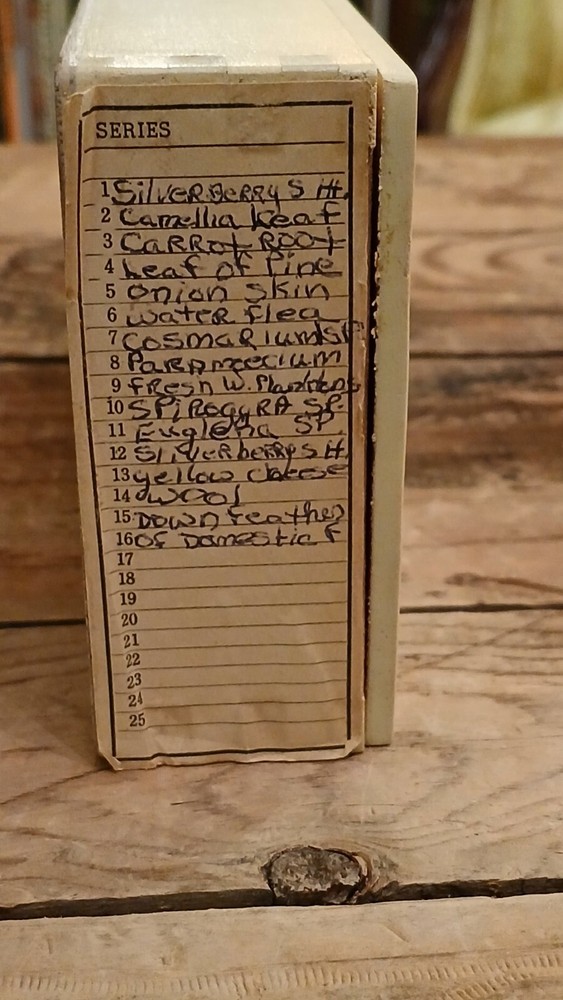 SERIES
1 SilverBerry S H.
2 Camellia Leaf
3 CARROt ROOt
4 Leaf of Pine
5 Onion Skin
6 water flea
7 Cosmarium SP
8 Paramoecium
9 Fresh W. Planktons
10 SPiROGyRA SP.
11 Euglena SP.
12 SilverberrySH.
13 yellow cheese
14 wool
15 Down Feather
16 Of Domestic F
17
18
19
20
21
22
23
24
25